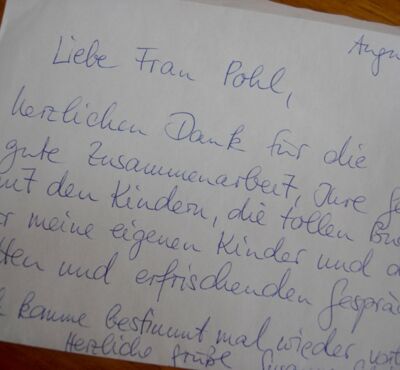 Augu
Liebe Frau Pohl,
herzlichen Dank für die
gute Zusammenarbeit, Ihre
mit den Kindern, die tollen
meine eigenen Kinder und
und erfrischenden Gesprä
komme bestimmt mal wieder
Herzliche Grüße